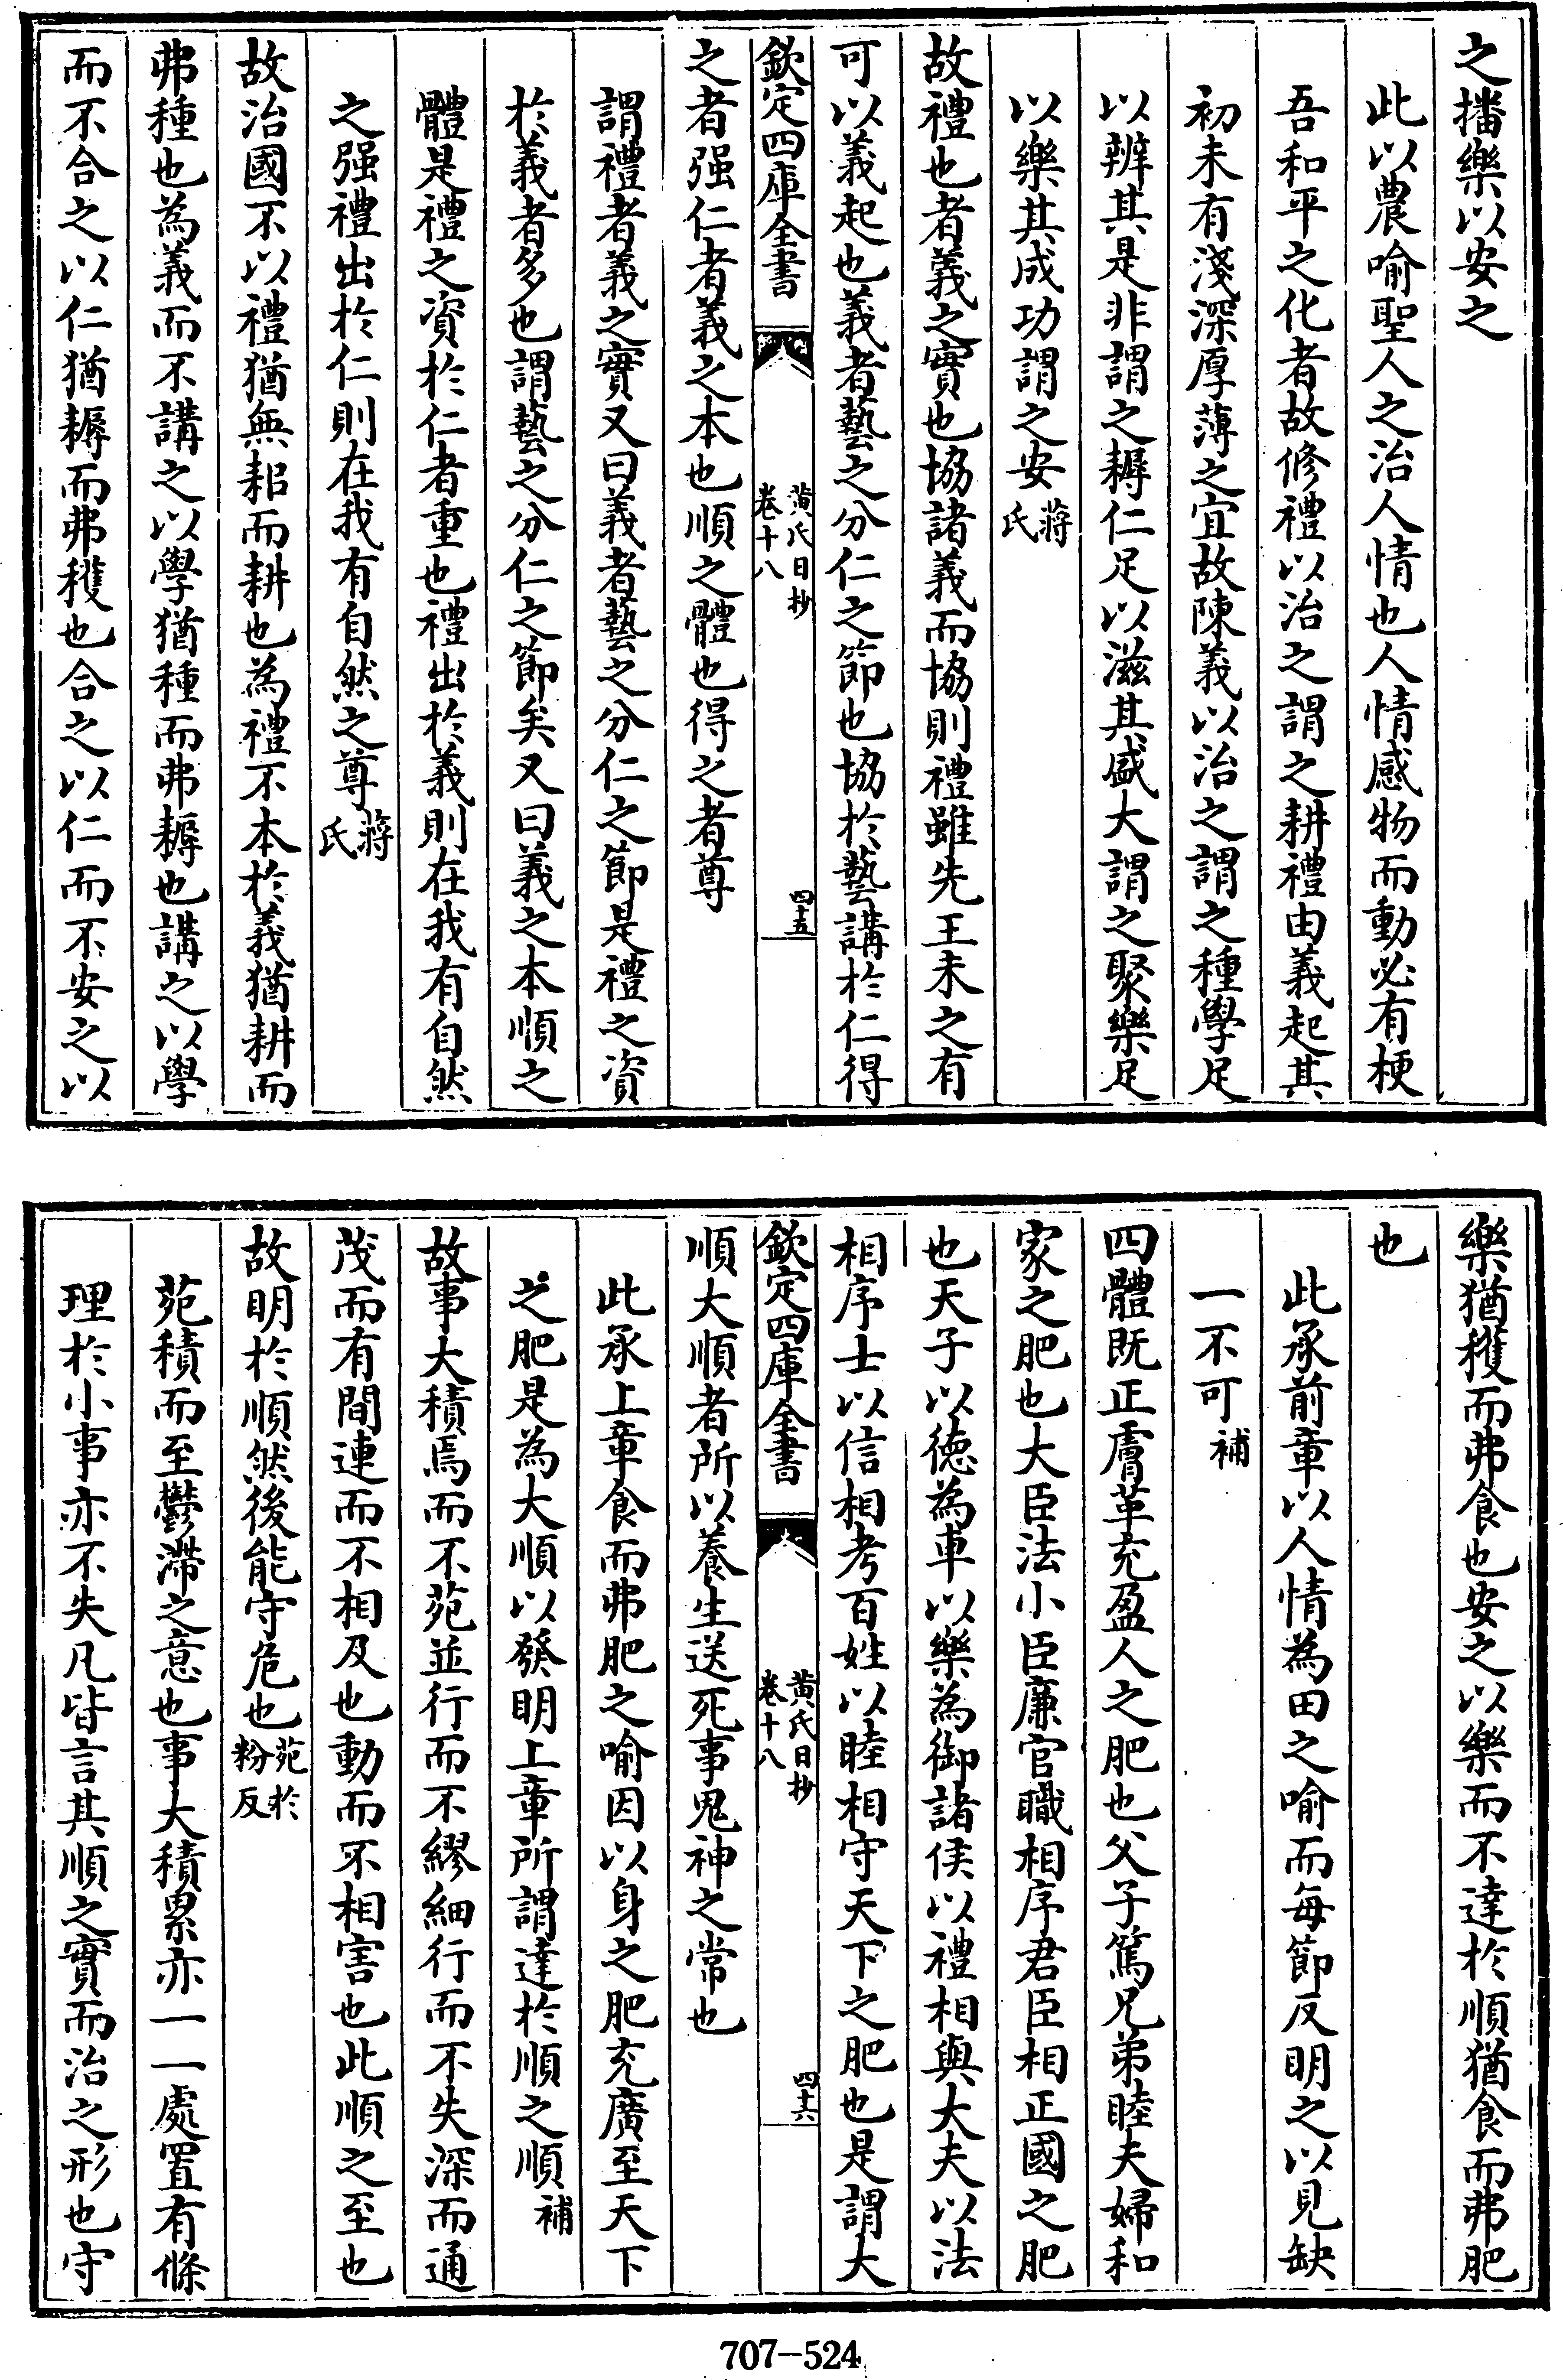 之播樂以安之
此以農喻聖人之治人情也人情感物而動必有梗
吾和平之化者故修禮以治之謂之耕禮由義起其
初未有淺深厚薄之宜故陳義以治之謂之種學足
以辨其是非謂之耨仁足以滋其盛大謂之聚樂足
以樂其成功謂之安蔣氏
故禮也者義之實也協諸義而協則禮雖先王未之有
可以義起也義者藝之分仁之節也協於藝講於仁得
欽定四庫全書 黄氏日抄 卷十八 四十五
之者强仁者義之本也順之體也得之者尊
謂禮者義之實又曰義者藝之分仁之節是禮之資
於義者多也謂藝之分仁之節矣又曰義之本順之
體是禮之資於仁者重也禮出於義則在我有自然
之强禮出於仁則在我有自然之尊蔣氏
故治國不以禮猶無耜而耕也為禮不本於義猶耕而
弗種也為義而不講之以學猶種而弗耨也講之以學
而不合之以仁猶耨而弗穫也合之以仁而不安之以
樂猶穫而弗食也安之以樂而不達於順猶食而弗肥
也
此承前章以人情為田之喻而每節反明之以見缺
一不可補
四體既正膚革充盈人之肥也父子篤兄弟睦夫婦和
家之肥也大臣法小臣廉官職相序君臣相正國之肥
也天子以徳為車以樂為御諸侯以禮相與大夫以法
相序士以信相考百姓以睦相守天下之肥也是謂大
欽定四庫全書 黄氏日抄 卷十八 四十六
順大順者所以養生送死事鬼神之常也
此承上章食而弗肥之喻因以身之肥充廣至天下
之肥是為大順以發明上章所謂達於順之順補
故事大積焉而不苑並行而不繆細行而不失深而通
茂而有間連而不相及也動而不相害也此順之至也
故明於順然後能守危也苑於粉反
苑積而至鬱滯之意也事大積累亦一一處置有條
理於小事亦不失凡皆言其順之實而治之形也守
707-524